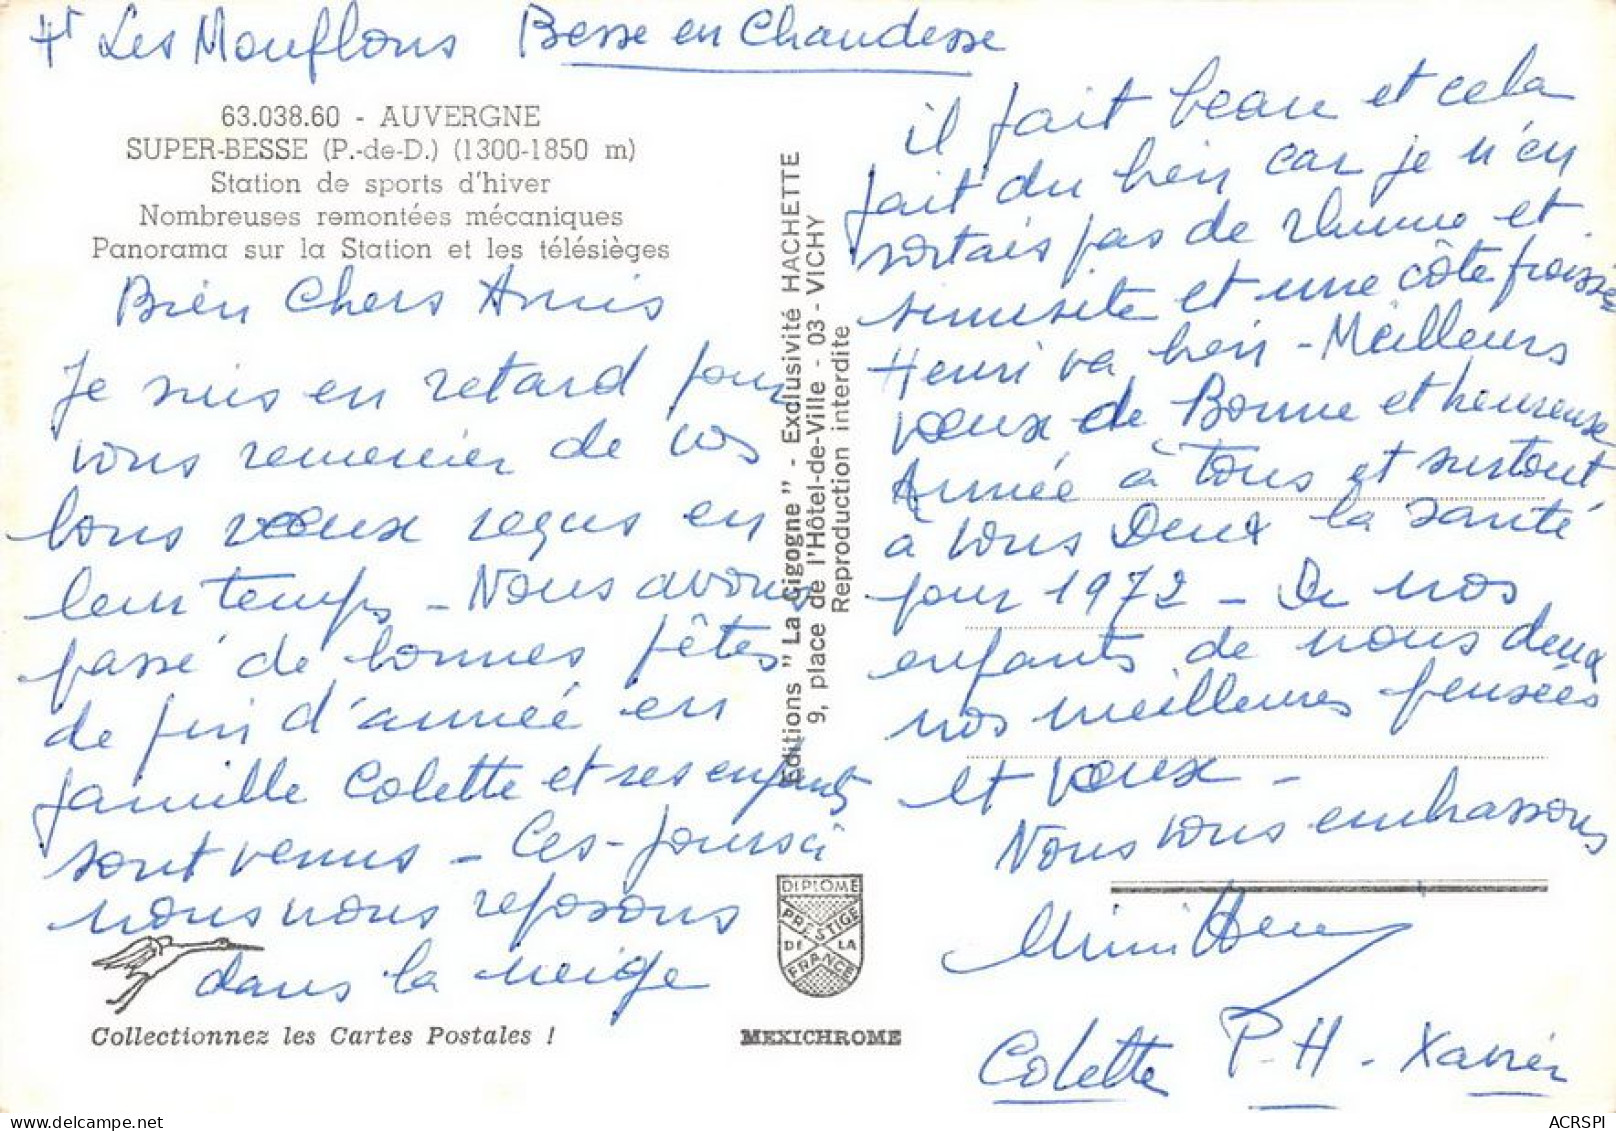 Ht Les Mouflons Besse en Chandesse
63.038.60 - AUVERGNE
SUPER-BESSE (P.-de-D.) (1300-1850 m)
Station de sports d'hiver
Nombreuses remontées mécaniques
Panorama sur la Station et les télésièges
Bien Chers Amis
Je suis en retard pour
vous remercier de vos
bons voeux reçus en
leur temps - Nous avons
passé de bonnes fêtes
de fin d'année en
famille Colette et ses enfants
sont venus - Ces-jours ci
nous nous reposons
dans la neige
Collectionnez les Cartes Postales !
Editions "La Cigogne" - Exclusivité HACHETTE
9, place de l'Hôtel-de-Ville - 03 - VICHY
Reproduction interdite
DIPLOME
PRESTIGE
DE LA
FRANCE
MEXICHROME
il fait beau et cela
fait du bien car je n'en
sortais pas de rhume et
sinusite et une côte froissée
Henri va bien - Meilleurs
voeux de Bonne et heureuse
Année à tous et surtout
à vous Deux la santé
pour 1972 - De nos
enfants de nous deux
nos meilleures pensées
et voeux -
Nous vous embrassons
Mimi Henri
Colette P-H - Xavier
ACRSPI